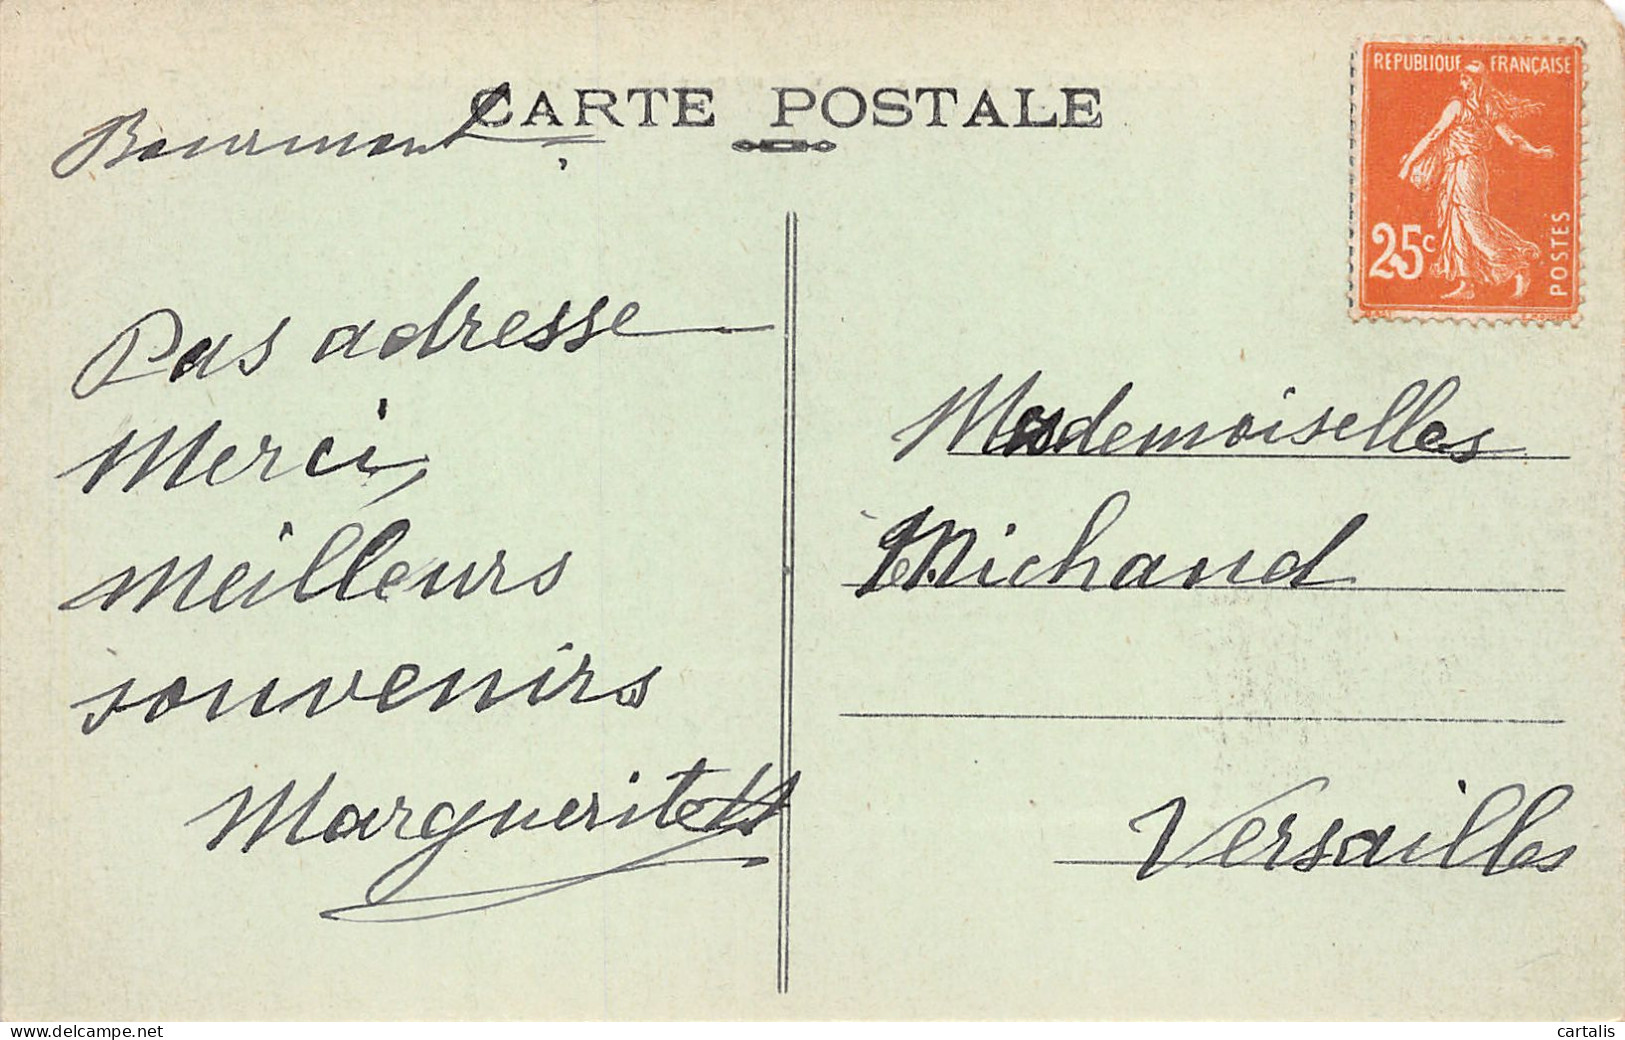 CARTE POSTALE
Bourmont
REPUBLIQUE FRANÇAISE
25c
POSTES
Pas adresse
Merci,
meilleurs
souvenirs
Marguerite
Mesdemoiselles
Michaud
Versailles
delcampe.net
cartalis